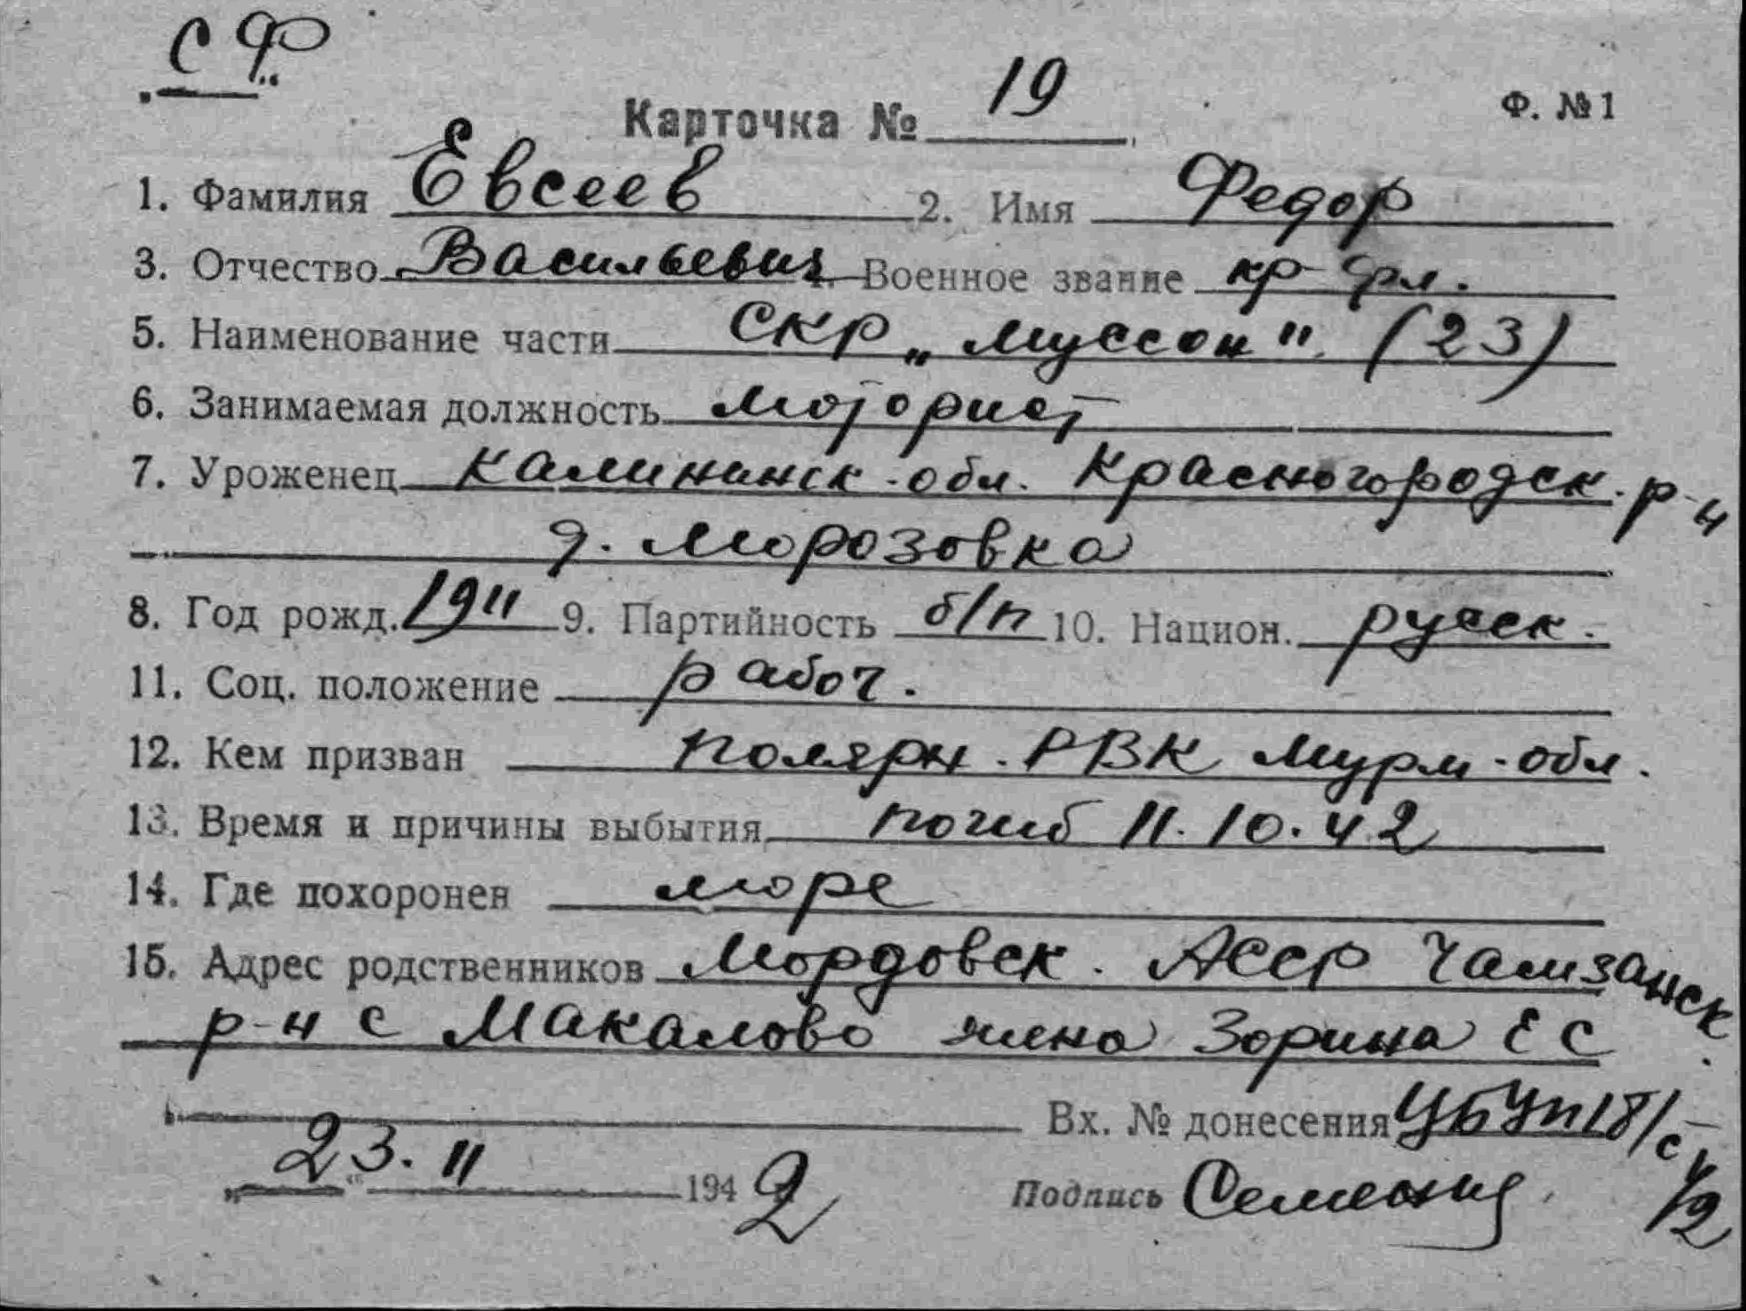 СФ
Карточка № 19
Ф. №1
1. Фамилия Евсеев 2. Имя Федор
3. Отчество Васильевич 4. Военное звание кр-фл.
5. Наименование части СКР „Муссон" (23)
6. Занимаемая должность моторист
7. Уроженец Калининск-обл. Красногородск. р-н
д. Морозовка
8. Год рожд. 1911 9. Партийность б/п 10. Национ. русск.
11. Соц. положение рабоч.
12. Кем призван Полярн. РВК Мурм-обл.
13. Время и причины выбытия погиб 11.10.42
14. Где похоронен море
15. Адрес родственников Мордовск. АССР Чамзанск.
р-н с Макалово жена Зорина Е С
Вх. № донесения ЦБУп18/с
„23." 11 1942
Подпись